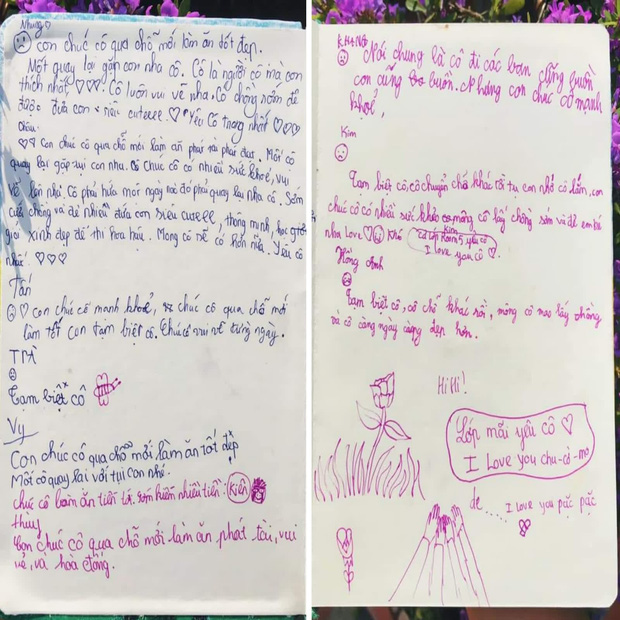 Nhung ♡
Con chúc cô qua chỗ mới làm ăn tốt đẹp.
Mốt quay lại gặp con nha cô. Cô là người cô mà con
thích nhất ♡♡♡. Cô luôn vui vẻ nha. Cô chồng sớm đẻ
được đứa con siêu cuteee. ♡ Yêu Cô trang nhất ♡♡♡
♡♡ Con chúc cô qua chỗ mới làm ăn phát tài phát đạt. Mốt cô
quay lại gặp tụi con nha. Chúc cô có nhiều sức khoẻ, vui
vẻ lên nha. Cô phải hứa một ngày nào đó phải quay lại nha cô. Sớm
cưới chồng và đẻ nhiều đứa con siêu cuteee, thông minh, học giỏi
xinh đẹp để thi hoa hậu. Mong cô sẽ có hơn nữa. Yêu cô
nhất ♡♡♡
Tấn
♡ con chúc cô mạnh khoẻ, chúc cô qua chỗ mới
làm tốt con tạm biệt cô. Chúc cô vui vẻ từng ngày.
TM
Tạm biệt cô
Vy
Con chúc cô qua chỗ mới làm ăn tốt đẹp
Mốt cô quay lại với tụi con nhé.
chúc cô làm ăn tiến tới. sớm kiếm nhiều tiền. Kiên
thuỷ
Con chúc cô qua chỗ mới làm ăn phát tài, vui
vẻ, và hoà đồng.
Nói chung là cô đi các bạn cũng buồn
con cũng buồn. Nhưng con chúc cô mạnh
khoẻ,
Kim
Tạm biệt cô, cô chuyển chỗ khác rồi tụi con nhớ cô lắm, con
chúc cô có nhiều sức khoẻ, mong cô lấy chồng sớm và đẻ em bé
nha Love ♡ Kim yêu cô
I love you cô ♡
Hồng Anh
Tạm biệt cô, cô chỗ khác rồi, mong cô mau lấy chồng
và cô càng ngày càng đẹp hơn.
Hi Hi!
Lớp mãi yêu cô ♡
I Love you chu-cà-mo
de...... I love you pặc pặc